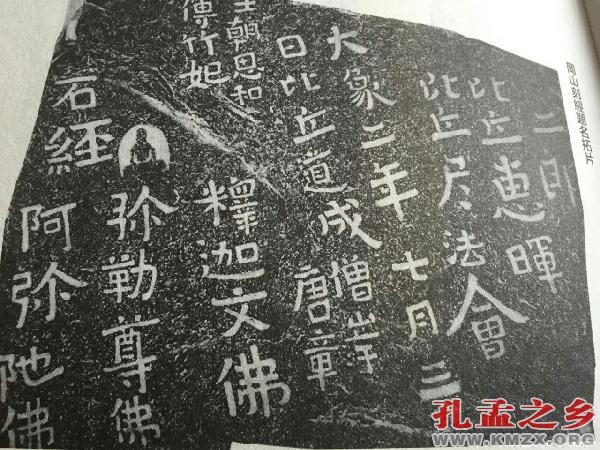 岡山刻經題名拓片
二郎
比丘惠暉
比丘尼法會
大象二年七月三
日比丘道成僧
唐章
朝思和
傅竹妃
釋迦文佛
弥勒尊佛
石經
阿弥陁佛
孔孟之乡
WWW.KMZX.ORG